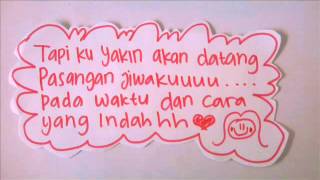 Tapi ku yakin akan datang
Pasangan jiwakuuuu....
pada waktu dan cara
yang Indahhh